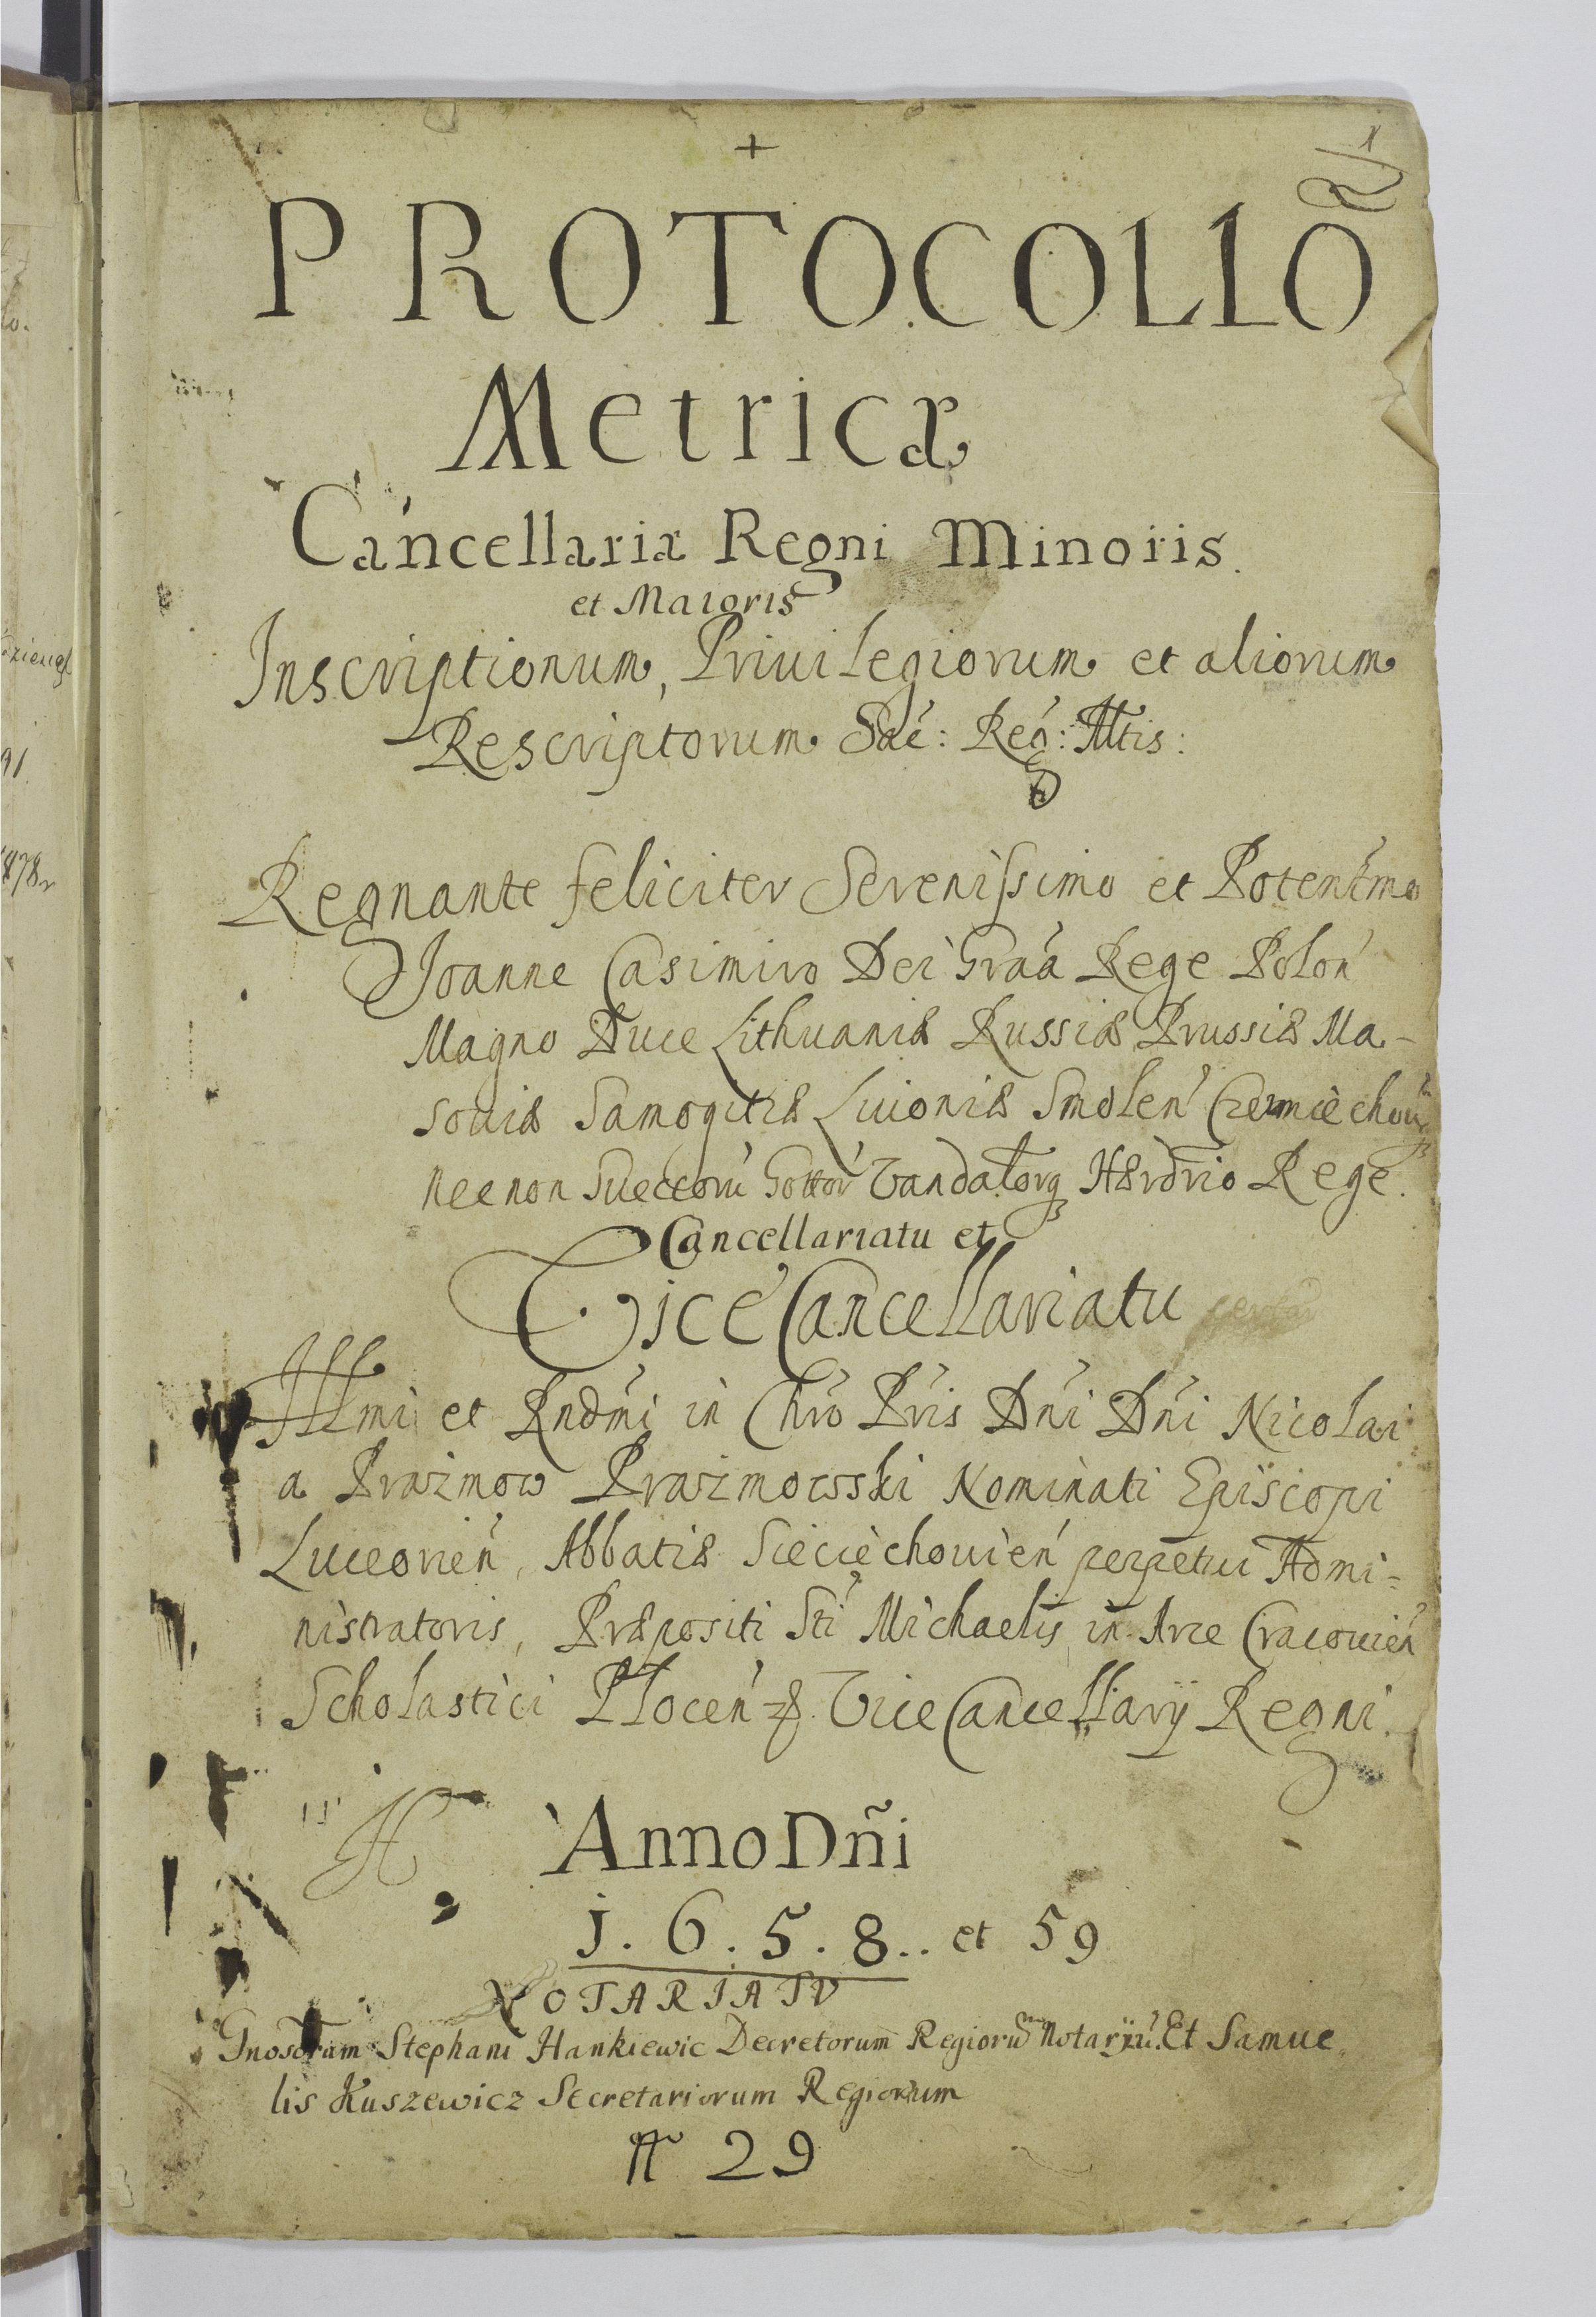 +
1
PROTOCOLLÕ
Metricæ
Cancellariæ Regni Minoris.
et Maioris
Inscriptionum, Priuilegiorum et aliorum
Rescriptorum Sac: Reg: Mtis:
Regnante feliciter Serenissimo et Potentmo
Joanne Casimiro Dei Graa Rege Polon
Magno Duce Lithuaniæ Russiæ Prussiæ Ma-
souiæ Samogitiæ Liuoniæ Smolen Czerniechou
necnon Sueccoru Gottor Vandalorq Hærdrio Rege.
Cancellariatu et
Vice Cancellariatu
Illmi et Rndmi in Chro Pris Dni Dni Nicolai
a Prazmow Prazmowsski Nominati Episcopi
Luceorien, Abbatiæ Sieciechouien perpetui Admi=
nistratoris, Præpositi Sti Michaelis in Arce Cracouien
Scholastici Plocen Vice Cancellarij Regni.
Anno Dñi
j. 6. 5. 8.. et 59
NOTARIATV
Gnosorum Stephani Hankiewic Decretorum Regioru Notariju. Et Samue,
lis Kuszewicz Secretariorum Regiorum
29